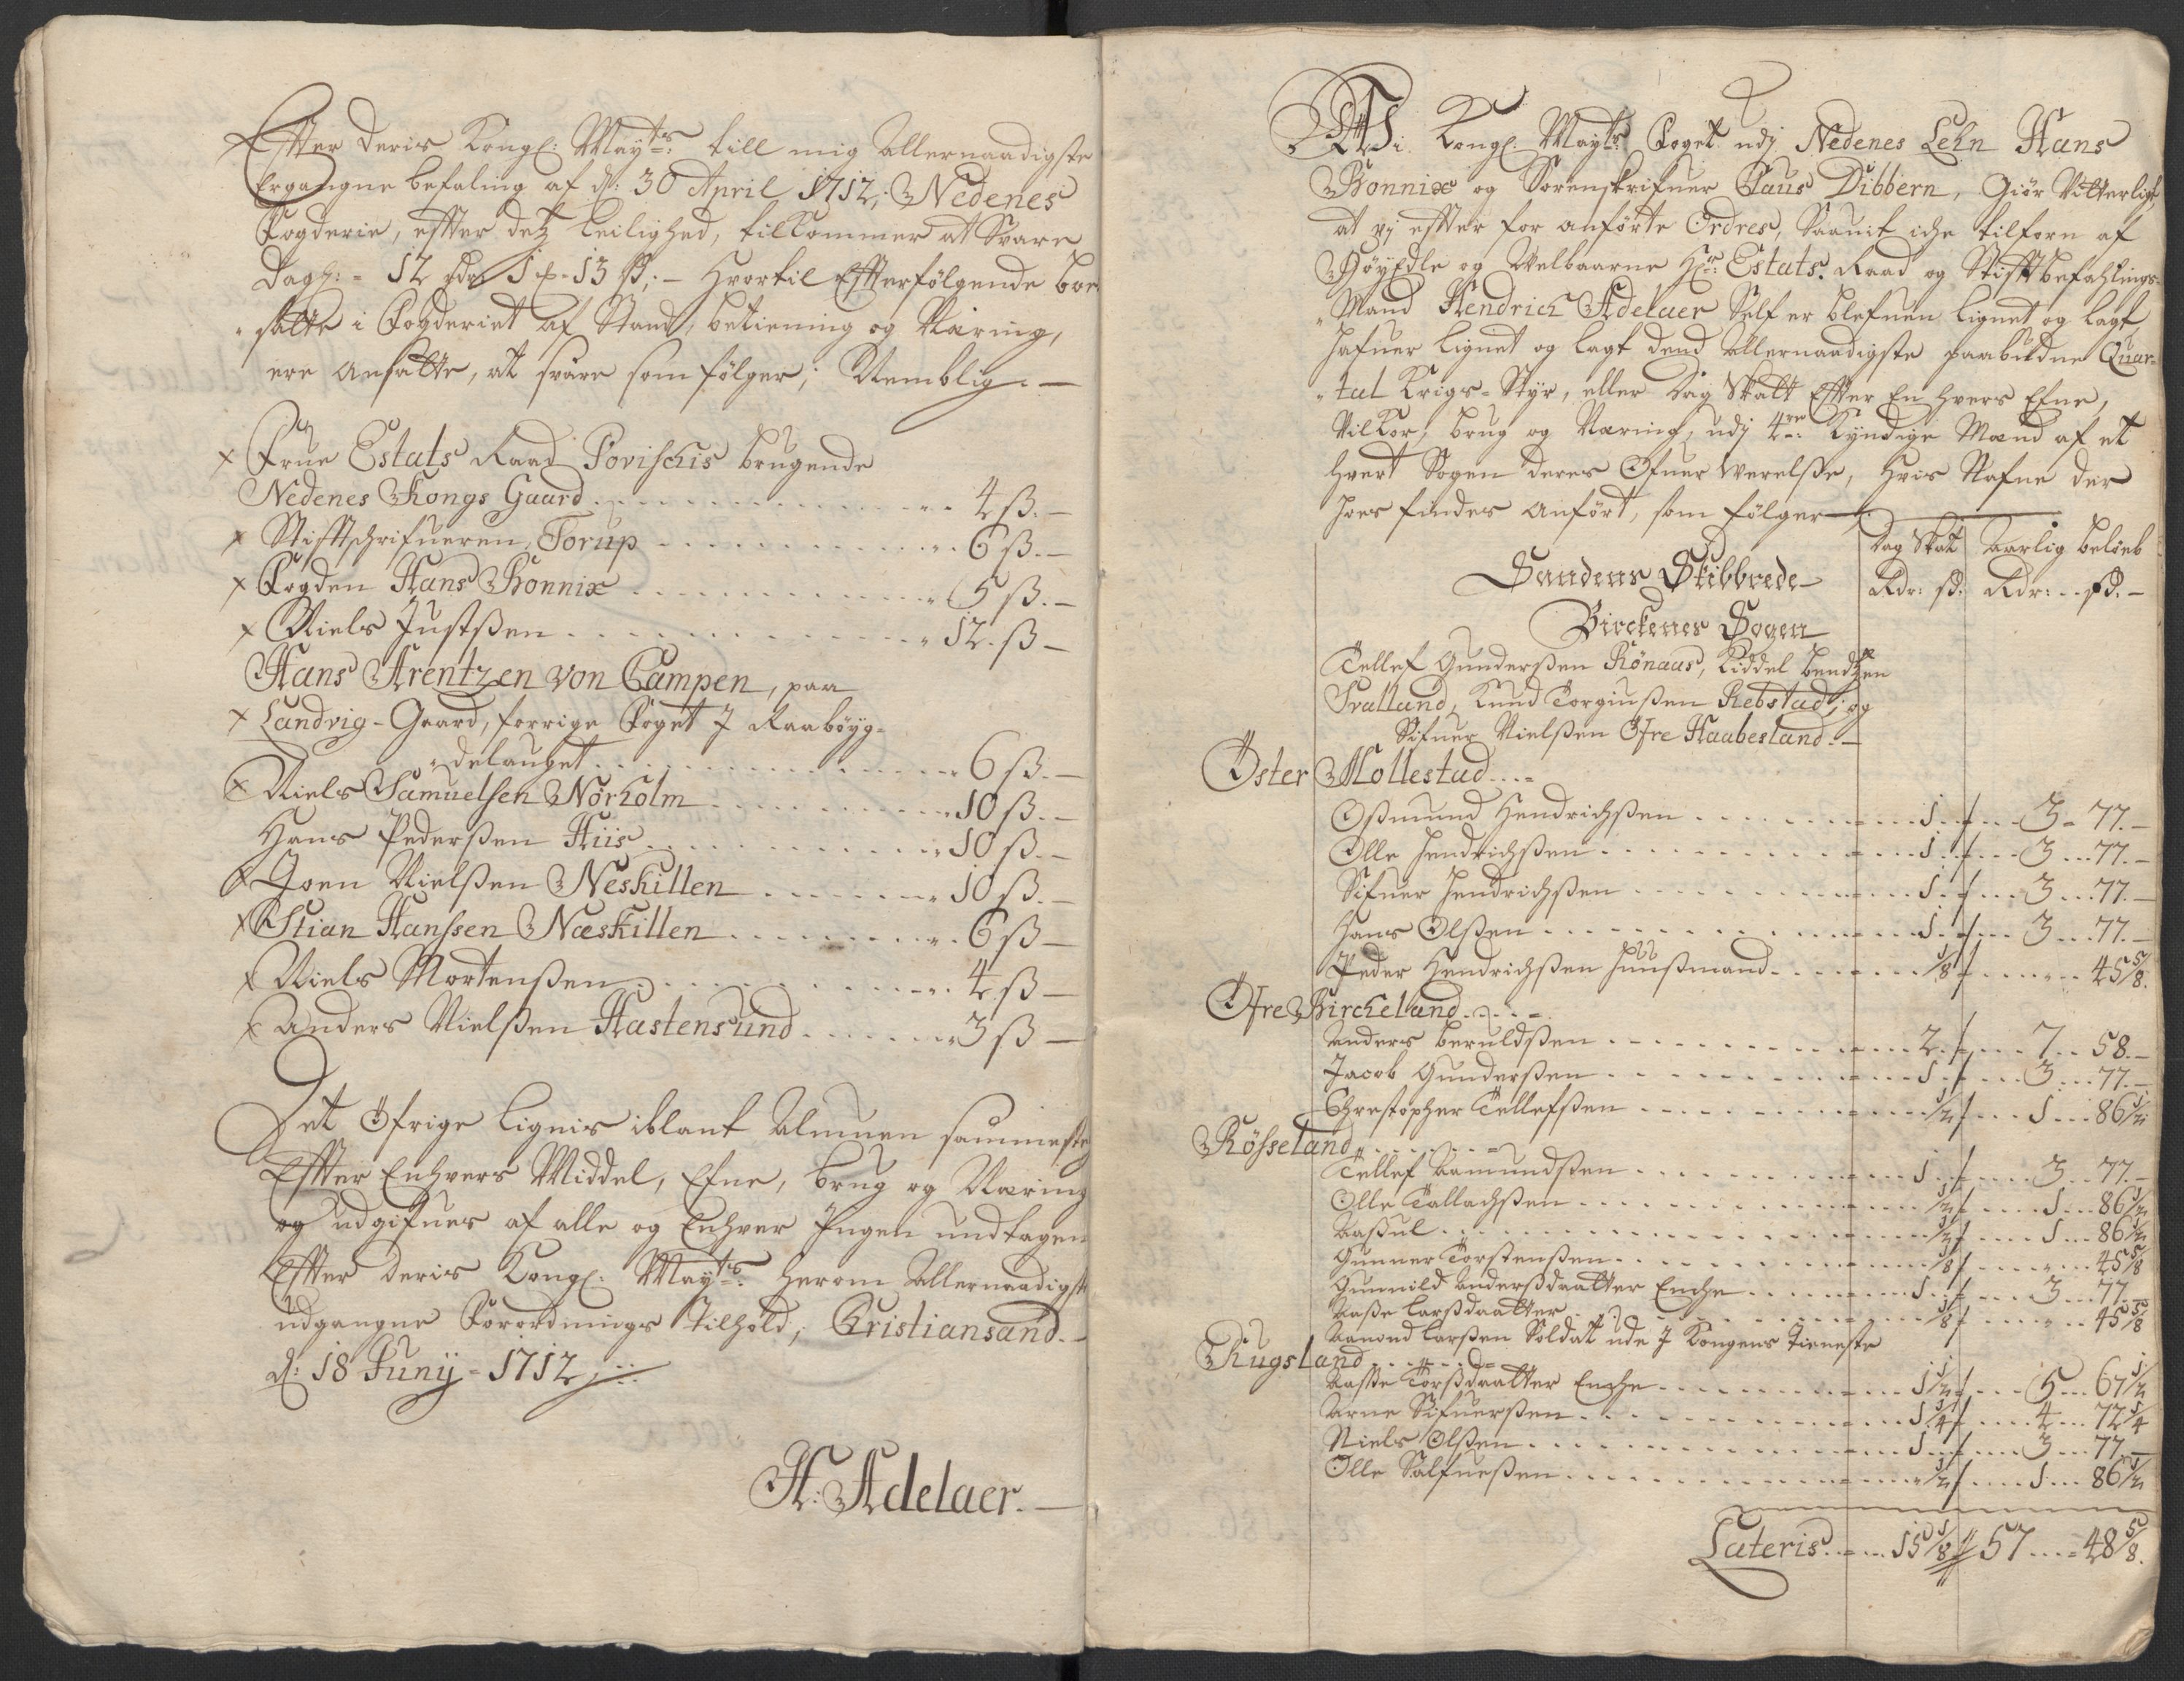 Effter Deris Kongl: Mayts: till mig allernaadigste
Ergangne befaling af d: 30 April 1712, Nedenes
Fogderie, effter detz leilighed, tilkommer at svare
Dagl: = 12 rdr 1 - 13 ß; - hvortil Effterfølgende boe-
satte i Fogderiet af Stand, betiening og Næring,
ere ansatte, at svare som følger; Nemblig: —
x Frue Estats Raad Povischis brugende
Nedenes Kongs Gaard . . . . 4 ß. —
x Stifftschrifueren, Torup . . . . 6 ß. —
x Fogden Hans Bonnix . . . . 5 ß. —
x Niels Justßen . . . . 12. ß —
Hans Arentzen von Campen, paa
x Landvig-Gaard, forrige Foget I Raabøyg-
delauget . . . . 6 ß. —
x Niels Samuelsen Nørholm . . . . 10 ß. —
Hans Pederßen Hiis . . . . 10 ß. —
x Joen Nielßen Neskillen . . . . 10 ß. —
x Stian Hanssen Næskillen . . . . 6 ß —
x Niels Mortenßen . . . . 4 ß —
x Anders Nielßen Hastensund . . . . 3 ß —
Det Øfrige lignis iblant Almuen sammesteds
Effter Enhvers Middel, Efne, brug og Næring
og udgifues af alle og Enhver Ingen undtagen
Effter Deris Kongl: Mayts: herom Allernaadigste
udgangne Forordnings Tilhold, Cristiansand. —
d: 18 Junij = 1712
H: Adelaer. —
Wi Kongl: Mayts: Foget udj Nedenes Lehn Hans
Bonnix og Sorenskrifuer Claus Dibbern, Giør Vitterligt,
at vj effter for anførte Ordres, saauit iche tilforn af
Høyedle og Welbaarne Hr: Estats Raad og Stifftbefahlings-
Mand Hendrich Adelaer Self er blefuen lignet og lagt,
hafuer lignet og lagt dend allernaadigste paabudne Quar-
tal Krigs-Styr, eller Dag Skatt Effter En hvers Efne,
Vilkor, brug og Næring, udj 4re: Kyndige Mænd af et
hvert Sogen deres Ofuer Werelße, hvis Nafne der
hoes findes anført, som følger —
Sandens Skibbrede — Dag Skat Aarlig beløeb
Rdr: ß. Rdr: . . ß. —
Birckenes Sogen
Tellef Gunderßen Rønaas, Kiddel bendtzen
Svalland, Knud Torgiusßen Rebstad; og
Sifuer Nielßen Øfre Haabesland. —
Øster Mollestad
Oßmund Hendrichßen . . . . 1. . . . 3 - 77. —
Olle Hendrichßen . . . . 1. . . . 3 . . . 77. —
Sifuer Hendrichßen . . . . 1. . . . 3 . . . 77. —
Hans Olßen . . . . 1. . . . 3 . . . 77. —
Peder Hendrichßen Huußmand . . . . 1/8 . . . . 45 5/8.
Øfre Bircheland
Anders beruldßen . . . . 2. . . . 7 . . 58. —
Jacob Gunderßen . . . . 1. . . . 3 . . . 77. —
Christopher Tellefßen . . . . 1/2 . . . . 1 . . . 86 1/2
Røsseland
Tellef Aamundßen . . . . 1. . . . 3 . . . 77. —
Olle Tallachßen . . . . 1/2 . . . . 1 . . . 86 1/2
Aaßul . . . . 1/2 . . . . 1 . . . 86 1/2
Gunner Torstenßen . . . . 1/8 . . . . 45 5/8
Gunnild Anderßdaatter Enche . . . . 1. . . . 3 . . . 77. —
Aaße Larßdaatter . . . . 1/8 . . . . 45 5/8
Aanond Larßen Soldat ude I Kongens Tieneste
Rugsland
Aaße Torßdaatter Enche . . . . 1 1/2 . . . . 5 . . . 67 1/2
Arne Sifuerßen . . . . 1 1/4 . . . . 4 . . . 72 1/4
Niels Olßen . . . . 1. . . . 3 . . . 77. —
Olle Salfueßen . . . . 1/2 . . . . 1 . . . 86 1/2
Lateris . . . . 15 1/8 57 . . . . 48 5/8.